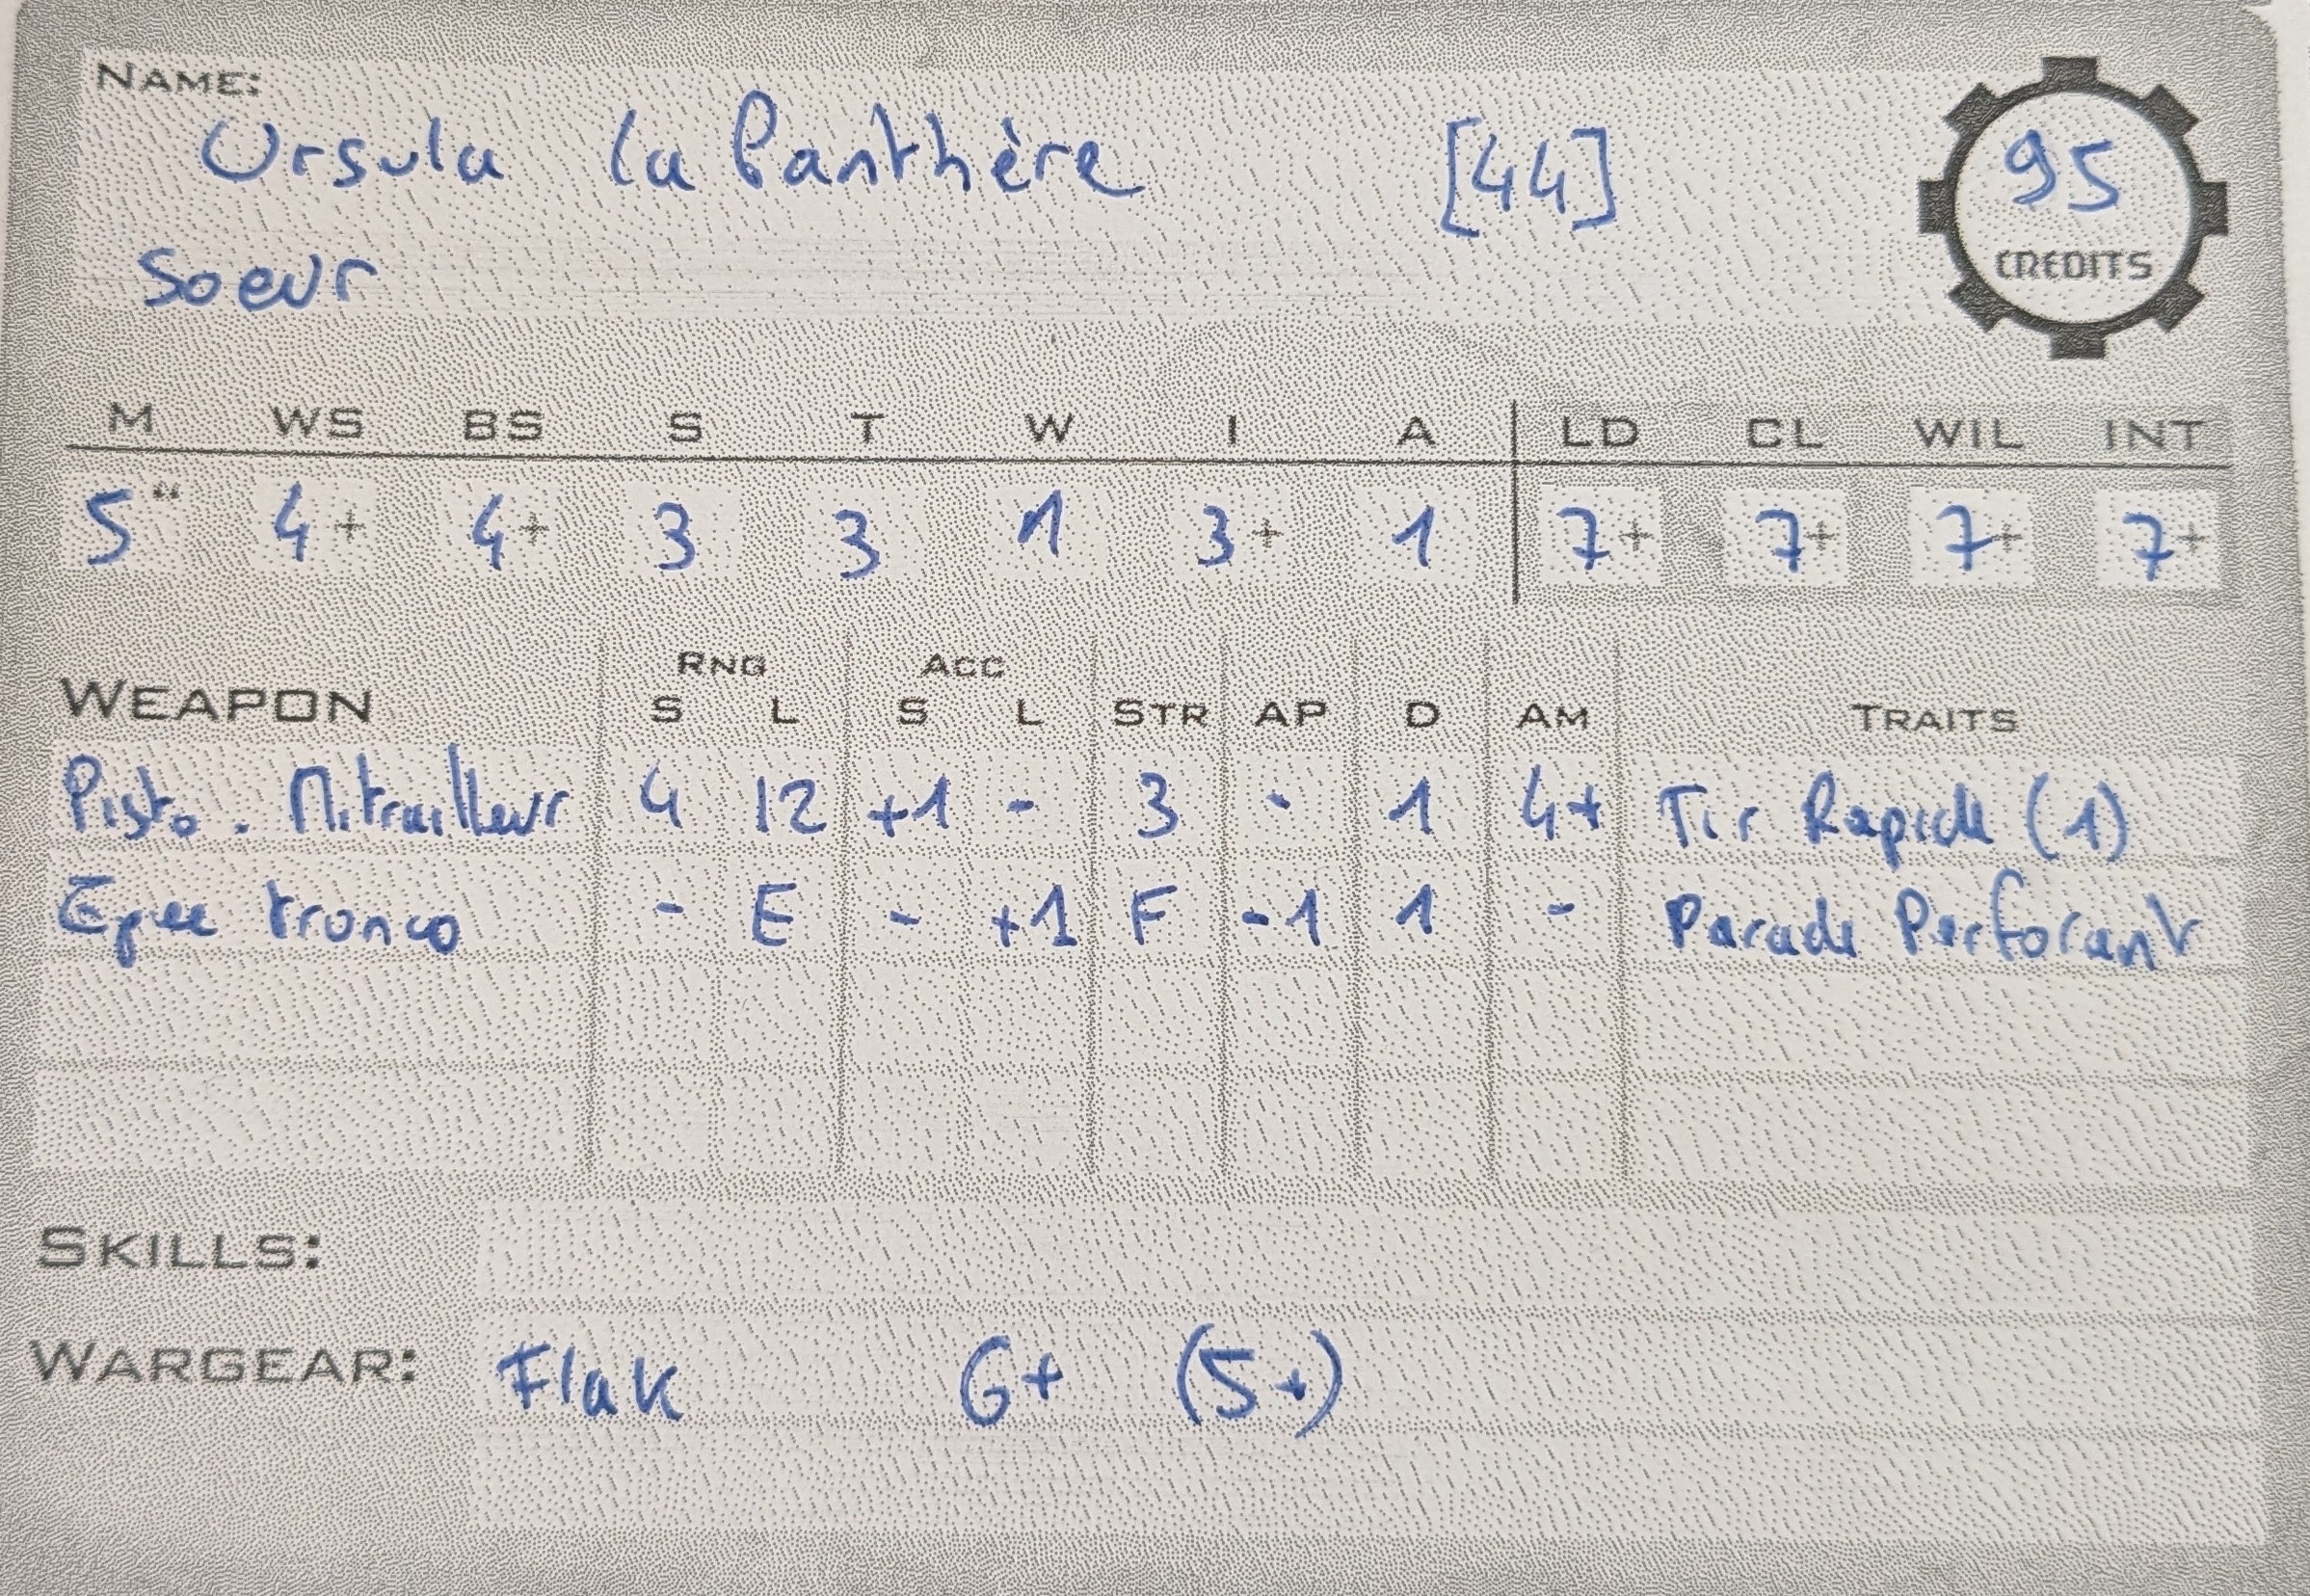 NAME:
Ursula la Panthère [44] 95
CREDITS
Soeur
M WS BS S T W I A LD CL WIL INT
5" 4+ 4+ 3 3 1 3+ 1 7+ 7+ 7+ 7+
RNG ACC
WEAPON S L S L STR AP D AM TRAITS
Pisto. Mitrailleur 4 12 +1 - 3 - 1 4+ Tir Rapide (1)
Epee tronco - E - +1 F -1 1 - Parade Perforant
SKILLS:
WARGEAR: Flak 6+ (5+)